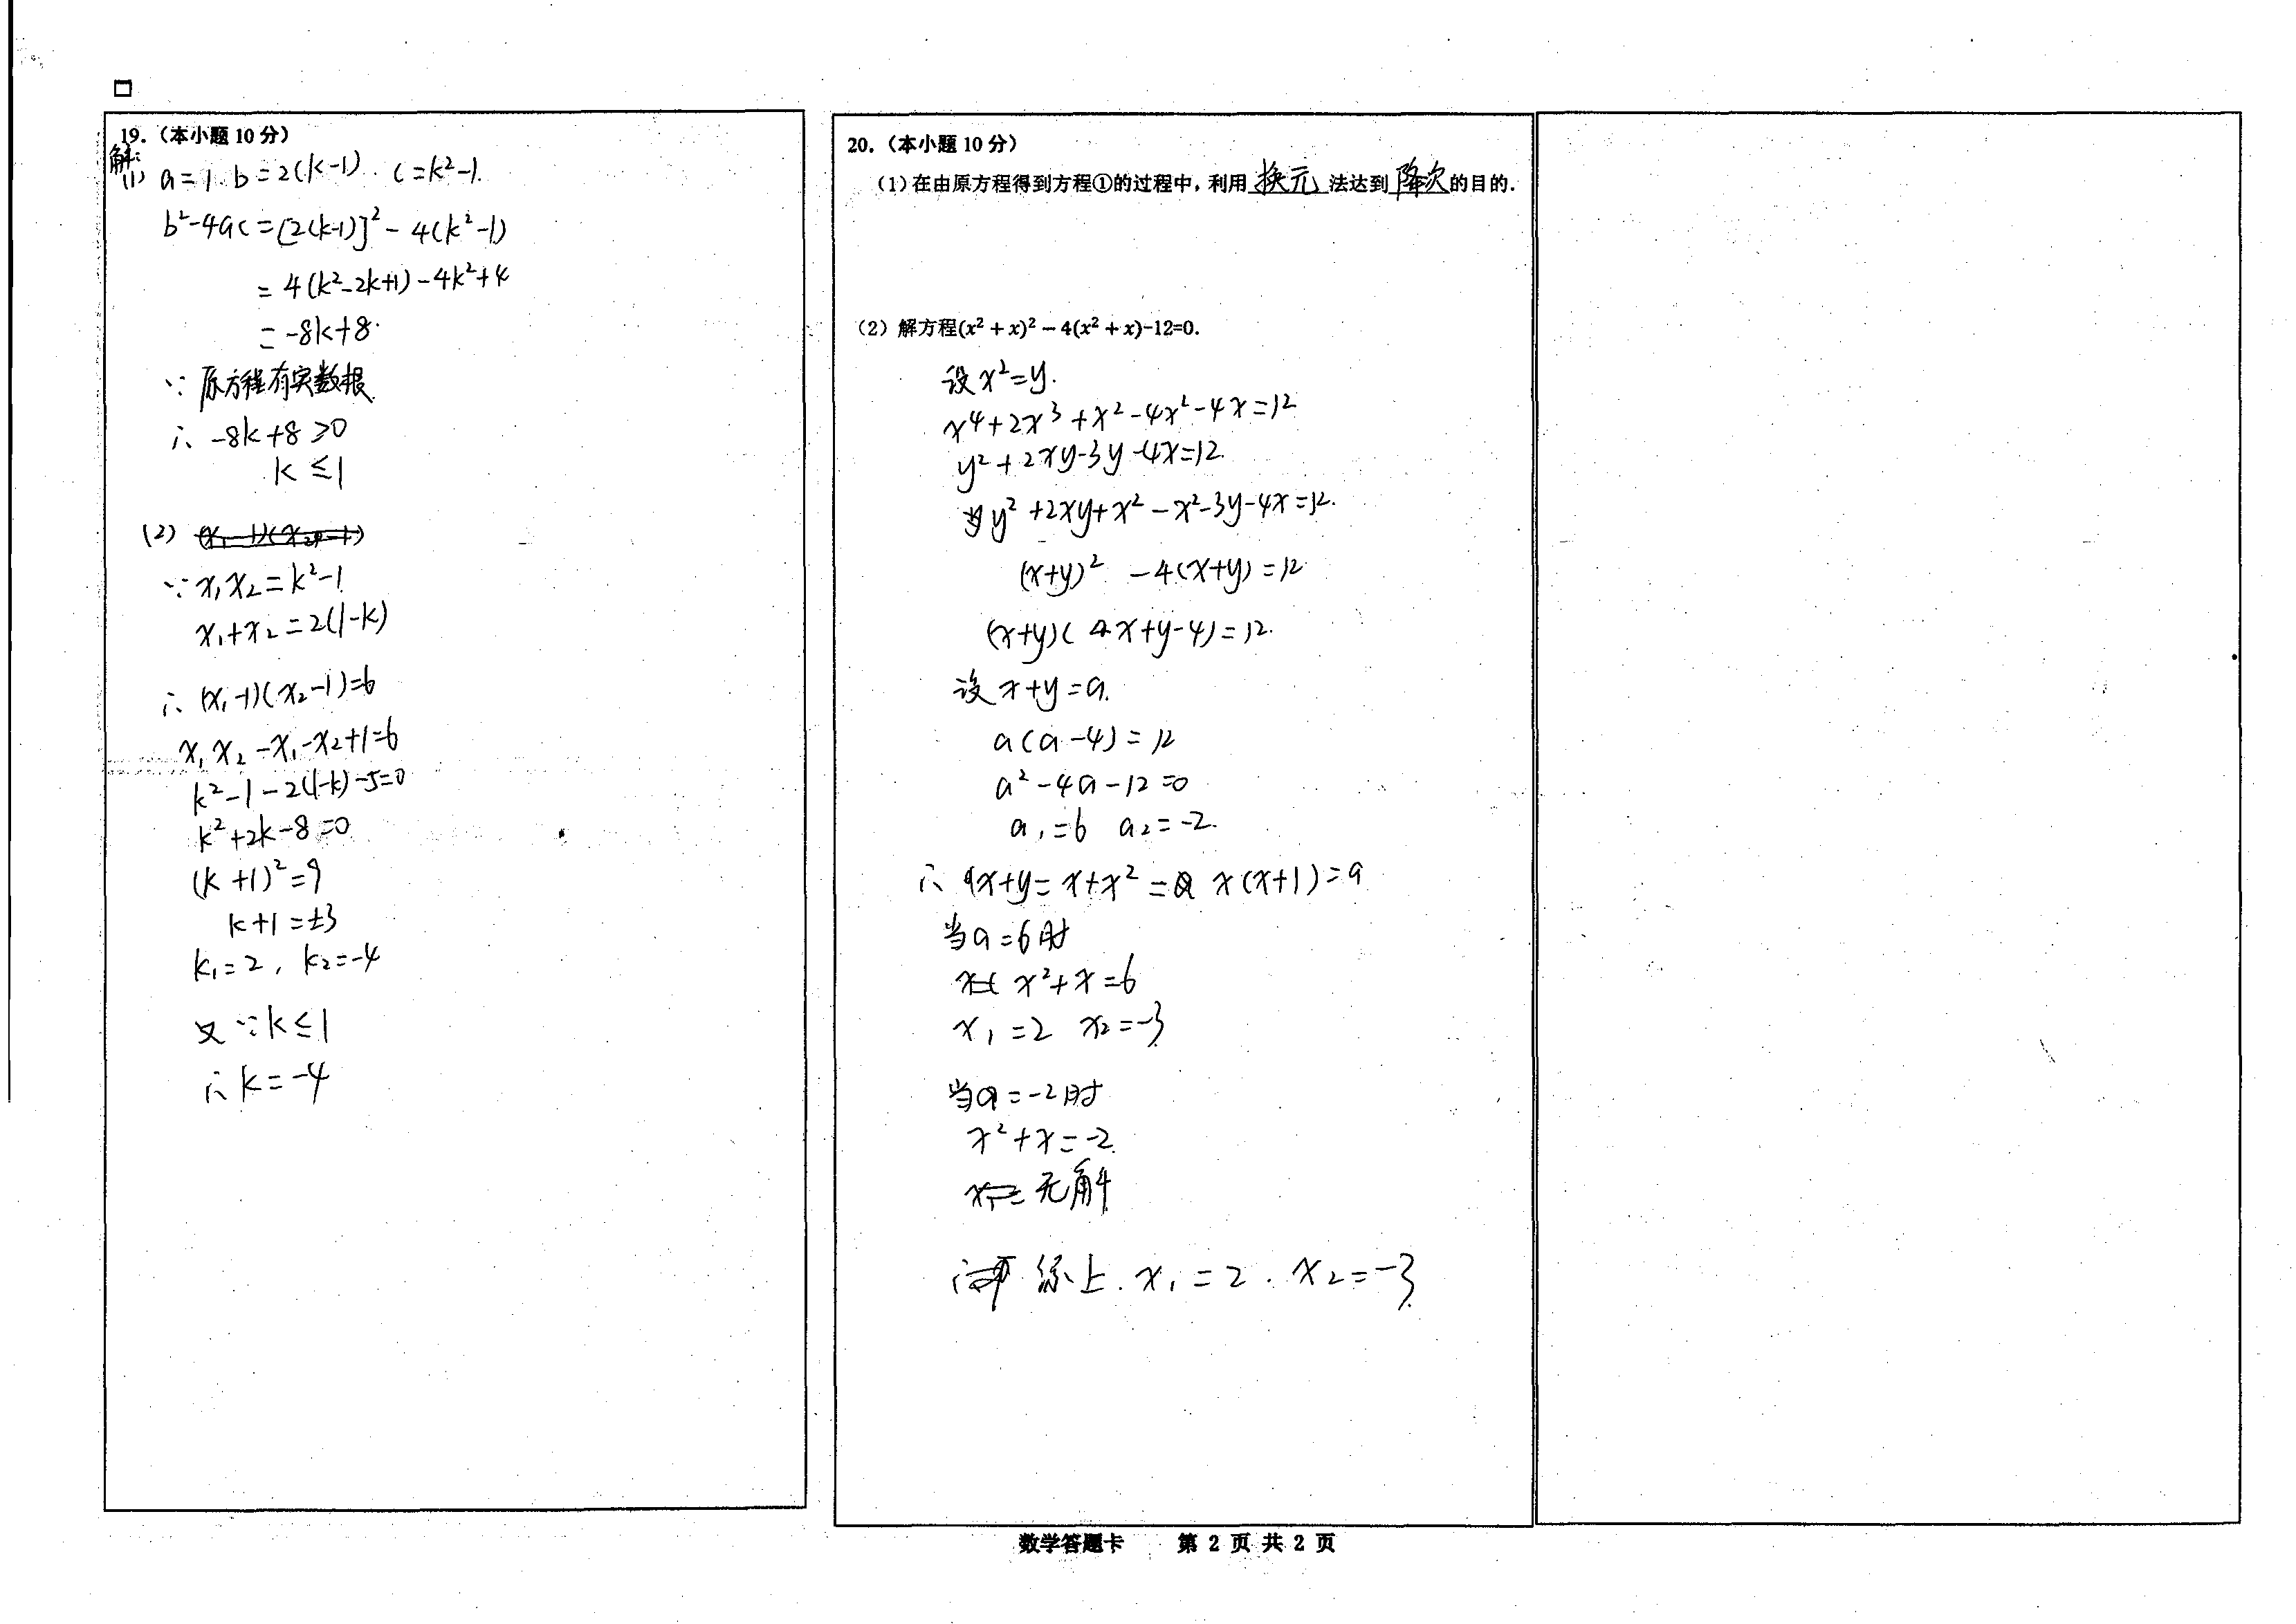 19.（本小题 10 分）
解:
(1) a=1. b=2(k-1). c=k²-1.
b²-4ac=[2(k-1)]²-4(k²-1)
=4(k²-2k+1)-4k²+4
=-8k+8.
∵ 原方程有实数根
∴ -8k+8≥0
k≤1
(2)
∵x₁x₂=k²-1
x₁+x₂=2(1-k)
∴ (x₁-1)(x₂-1)=6
x₁x₂-x₁-x₂+1=6
k²-1-2(1-k)-5=0
k²+2k-8=0
(k+1)²=9
k+1=±3
k₁=2, k₂=-4
又∵k≤1
∴k=-4
20.（本小题 10 分）
（1）在由原方程得到方程①的过程中，利用 换元 法达到 降次 的目的.
（2）解方程(x² + x)² − 4(x² + x)-12=0.
设x²=y.
x⁴+2x³+x²-4x²-4x=12
y²+2xy-3y-4x=12.
y²+2xy+x²-x²-3y-4x=12.
(x+y)² -4(x+y)=12
(x+y)(x+y-4)=12.
设x+y=a.
a(a-4)=12
a²-4a-12=0
a₁=6 a₂=-2.
∴ x+y=x+x²= x(x+1)=a
当a=6时
x²+x=6
x₁=2 x₂=-3
当a=-2时
x²+x=-2.
无解
综上. x₁=2. x₂=-3
数学答题卡 第 2 页 共 2 页